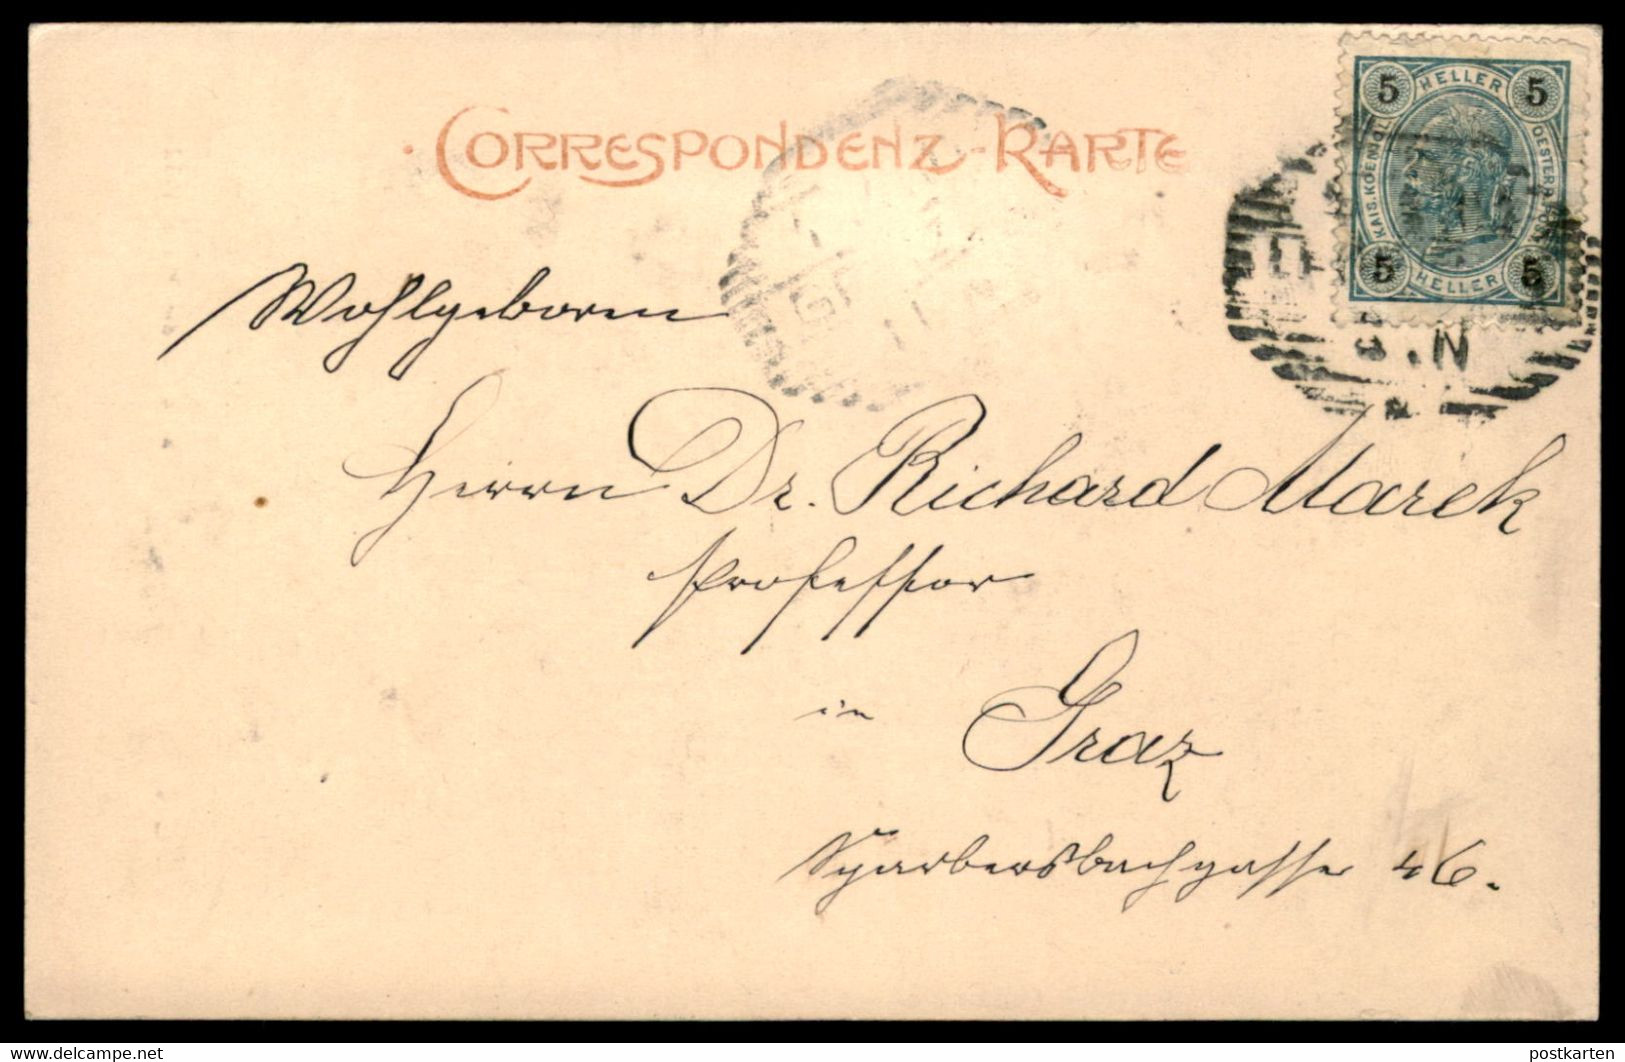 CORRESPONDENZ-KARTE
5 HELLER 5
KAIS. KOENIGL. OESTERR. POST
5 HELLER 5
N
Wohlgeboren
Herrn Dr. Richard Marek
Professor
in Graz
Sparbersbachgasse 46.
www.delcampe.net
postkarten